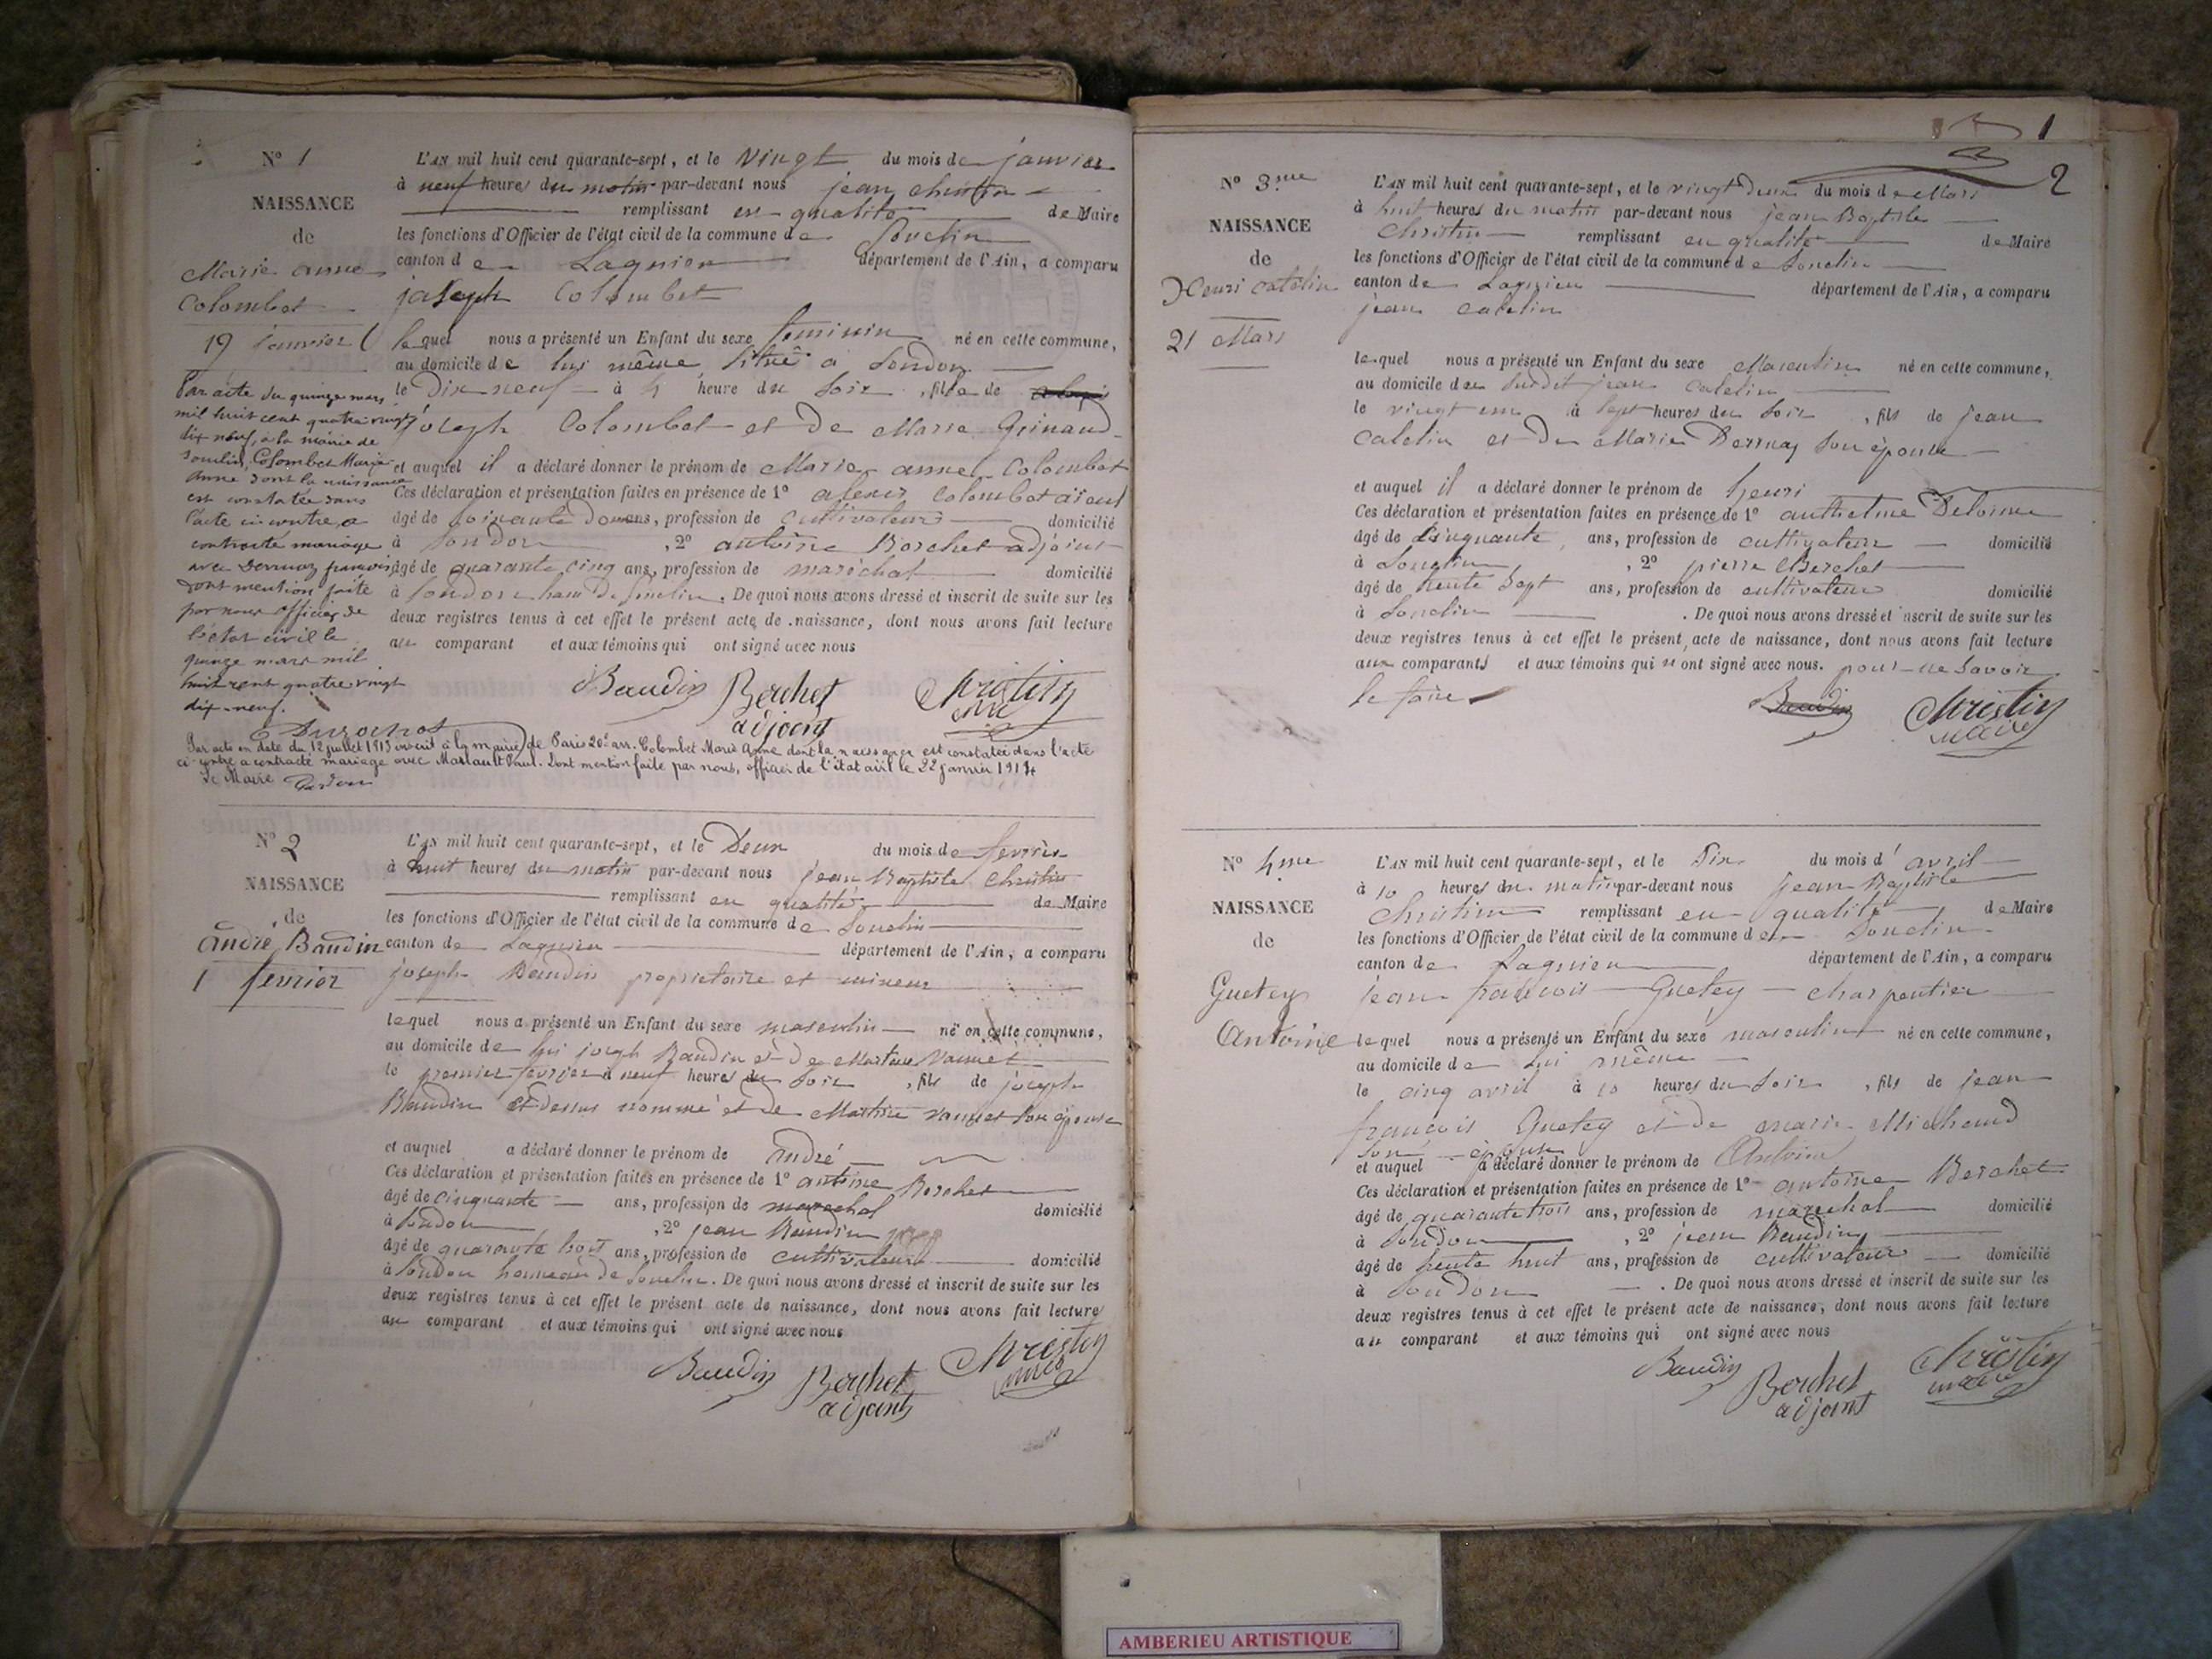 N° 1
NAISSANCE
de
Marie anne
Colombet
19 Janvier
Par acte du quinze mars
mil huit cent quatre vingt
dix neuf, a la mairie de
Souclin, Colombet Marie
Anne dont la naissance
est constatée dans
l'acte ci-contre, a
contracté mariage
avec Dernuaz françois
dont mention faite
par nous officier de
l'état civil le
quinze mars mil
huit cent quatre vingt
dix-neuf.
L'AN mil huit cent quarante-sept, et le Vingt du mois de janvier
à neuf heures du matin par-devant nous jean christin
remplissant en qualité de Maire
les fonctions d'Officier de l'état civil de la commune de Souclin
canton de Lagnieu département de l'Ain, a comparu
joseph Colombet
lequel nous a présenté un Enfant du sexe feminin né en cette commune,
au domicile de lui même, situé a Soudon
le Dix neuf à 4 heure du Soir, fille de
joseph Colombet et de Marie Guinand
et auquel il a déclaré donner le prénom de Marie anne Colombet
Ces déclaration et présentation faites en présence de 1° alexis Colombet aïeul
âgé de soixante douze ans, profession de Cultivateur domicilié
à Soudon, 2° antoine Berchet adjoint
âgé de quarante cinq ans, profession de maréchal domicilié
à Soudon ham de Souclin. De quoi nous avons dressé et inscrit de suite sur les
deux registres tenus à cet effet le présent acte de naissance, dont nous avons fait lecture
au comparant et aux témoins qui ont signé avec nous
Baudin Berchet Christin
adjoint maire
Par acte en date du 12 juillet 1913 inscrit à la mairie de Paris 20e arr. Colombet Marie Anne dont la naissance est constatée dans l'acte
ci-contre a contracté mariage avec Marlault Paul. Dont mention faite par nous, officier de l'état civil le 22 janvier 1914
Le Maire
N° 2
NAISSANCE
de
André Baudin
1 fevrier
L'AN mil huit cent quarante-sept, et le Deux du mois de fevrier
à huit heures du matin par-devant nous jean Baptiste Christin
remplissant en qualité de Maire
les fonctions d'Officier de l'état civil de la commune de Souclin
canton de Lagnieu département de l'Ain, a comparu
joseph Baudin proprietaire et mineur
lequel nous a présenté un Enfant du sexe masculin né en cette commune,
au domicile de lui joseph Baudin et de Martine Vannet
le premier fevrier à neuf heures du Soir, fils de joseph
Baudin ci-dessus nommé et de Martine vannet son épouse
et auquel a déclaré donner le prénom de André
Ces déclaration et présentation faites en présence de 1° antoine Berchet
âgé de cinquante ans, profession de marechal domicilié
à Soudon, 2° jean Baudin
âgé de quarante huit ans, profession de cultivateur domicilié
à Soudon hameau de Souclin. De quoi nous avons dressé et inscrit de suite sur les
deux registres tenus à cet effet le présent acte de naissance, dont nous avons fait lecture
au comparant et aux témoins qui ont signé avec nous
Baudin Berchet Christin
adjoint maire
1
2
N° 3me
NAISSANCE
de
Henri Catelin
21 Mars
L'AN mil huit cent quarante-sept, et le vingt deux du mois de Mars
à huit heures du matin par-devant nous jean Baptiste
Christin remplissant en qualité de Maire
les fonctions d'Officier de l'état civil de la commune de Souclin
canton de Lagnieu département de l'Ain, a comparu
jean catelin
lequel nous a présenté un Enfant du sexe Masculin né en cette commune,
au domicile du Susdit jean Catelin
le vingt un à sept heures du Soir, fils de jean
Catelin et de Marie Dernuaz son épouse
et auquel il a déclaré donner le prénom de henri
Ces déclaration et présentation faites en présence de 1° anthelme Delorme
âgé de Cinquante ans, profession de cultivateur domicilié
à Souclin, 2° pierre Berchet
âgé de trente Sept ans, profession de cultivateur domicilié
à Souclin. De quoi nous avons dressé et inscrit de suite sur les
deux registres tenus à cet effet le présent acte de naissance, dont nous avons fait lecture
aux comparants et aux témoins qui n'ont signé avec nous. pour ne savoir
le faire
Baudin Christin
maire
N° 4me
NAISSANCE
de
Guetey
Antoine
L'AN mil huit cent quarante-sept, et le Six du mois d'avril
à 10 heures du matin par-devant nous jean Baptiste
Christin remplissant en qualité de Maire
les fonctions d'Officier de l'état civil de la commune de Souclin
canton de Lagnieu département de l'Ain, a comparu
jean françois Guetey charpentier
lequel nous a présenté un Enfant du sexe masculin né en cette commune,
au domicile de lui même
le cinq avril à 10 heures du Soir, fils de jean
françois Guetey et de marie Michaud
son épouse
et auquel a déclaré donner le prénom de Antoine
Ces déclaration et présentation faites en présence de 1° antoine Berchet
âgé de quarante trois ans, profession de marechal domicilié
à Soudon, 2° jean Baudin
âgé de trente huit ans, profession de cultivateur domicilié
à Soudon. De quoi nous avons dressé et inscrit de suite sur les
deux registres tenus à cet effet le présent acte de naissance, dont nous avons fait lecture
au comparant et aux témoins qui ont signé avec nous
Baudin Berchet Christin
adjoint maire
AMBERIEU ARTISTIQUE